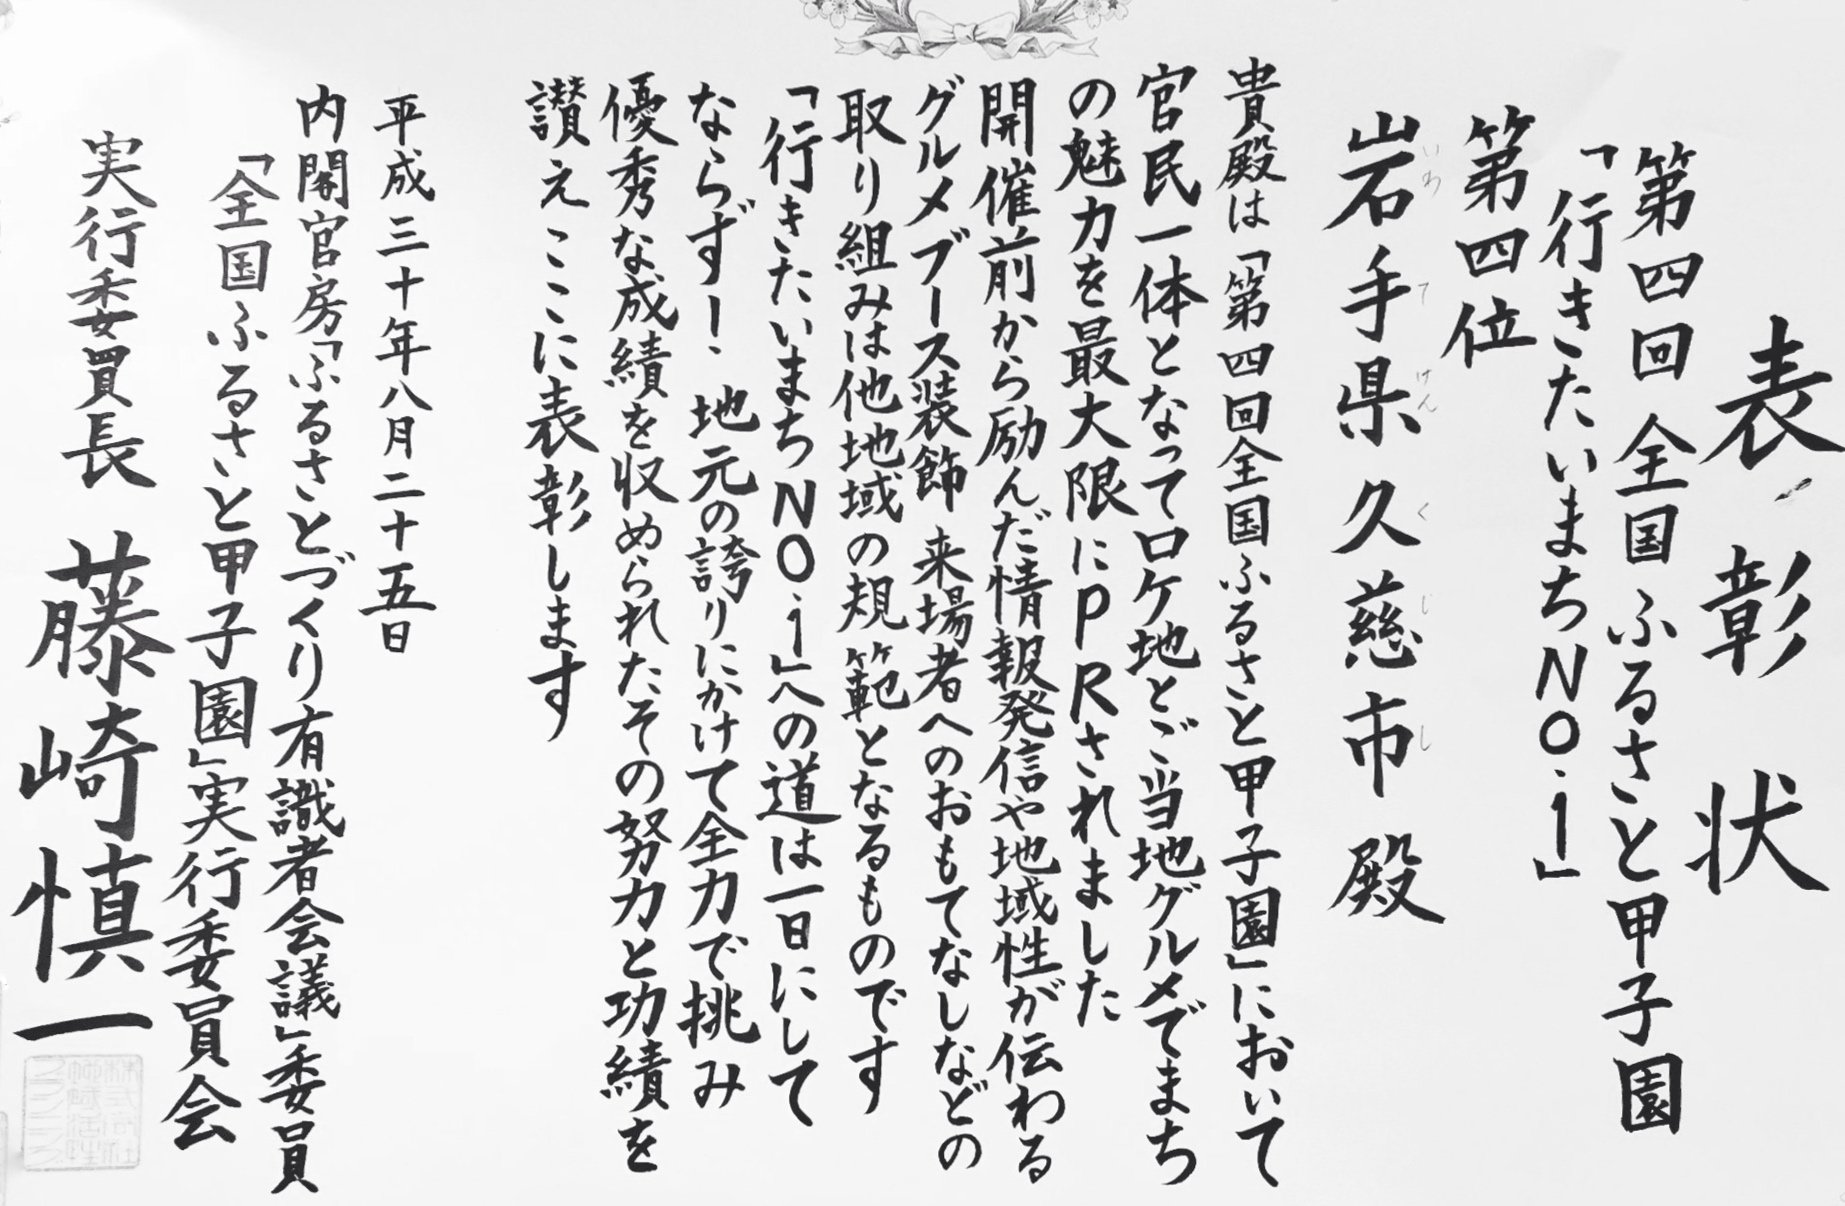 表彰状
第四回 全国ふるさと甲子園
「行きたいまちNO.1」
第四位
岩手県久慈市 殿
いわ て けん く じ し
貴殿は「第四回全国ふるさと甲子園」において
官民一体となってロケ地とご当地グルメでまち
の魅力を最大限にPRされました
開催前から励んだ情報発信や地域性が伝わる
グルメブース装飾 来場者へのおもてなしなどの
取り組みは他地域の規範となるものです
「行きたいまちNO.1」への道は一日にして
ならずー、地元の誇りにかけて全力で挑み
優秀な成績を収められたその努力と功績を
讃えここに表彰します
平成三十年八月二十五日
内閣官房「ふるさとづくり有識者会議」委員
「全国ふるさと甲子園」実行委員会
実行委員長 藤崎慎一
株式会社
地域活性
プランニング